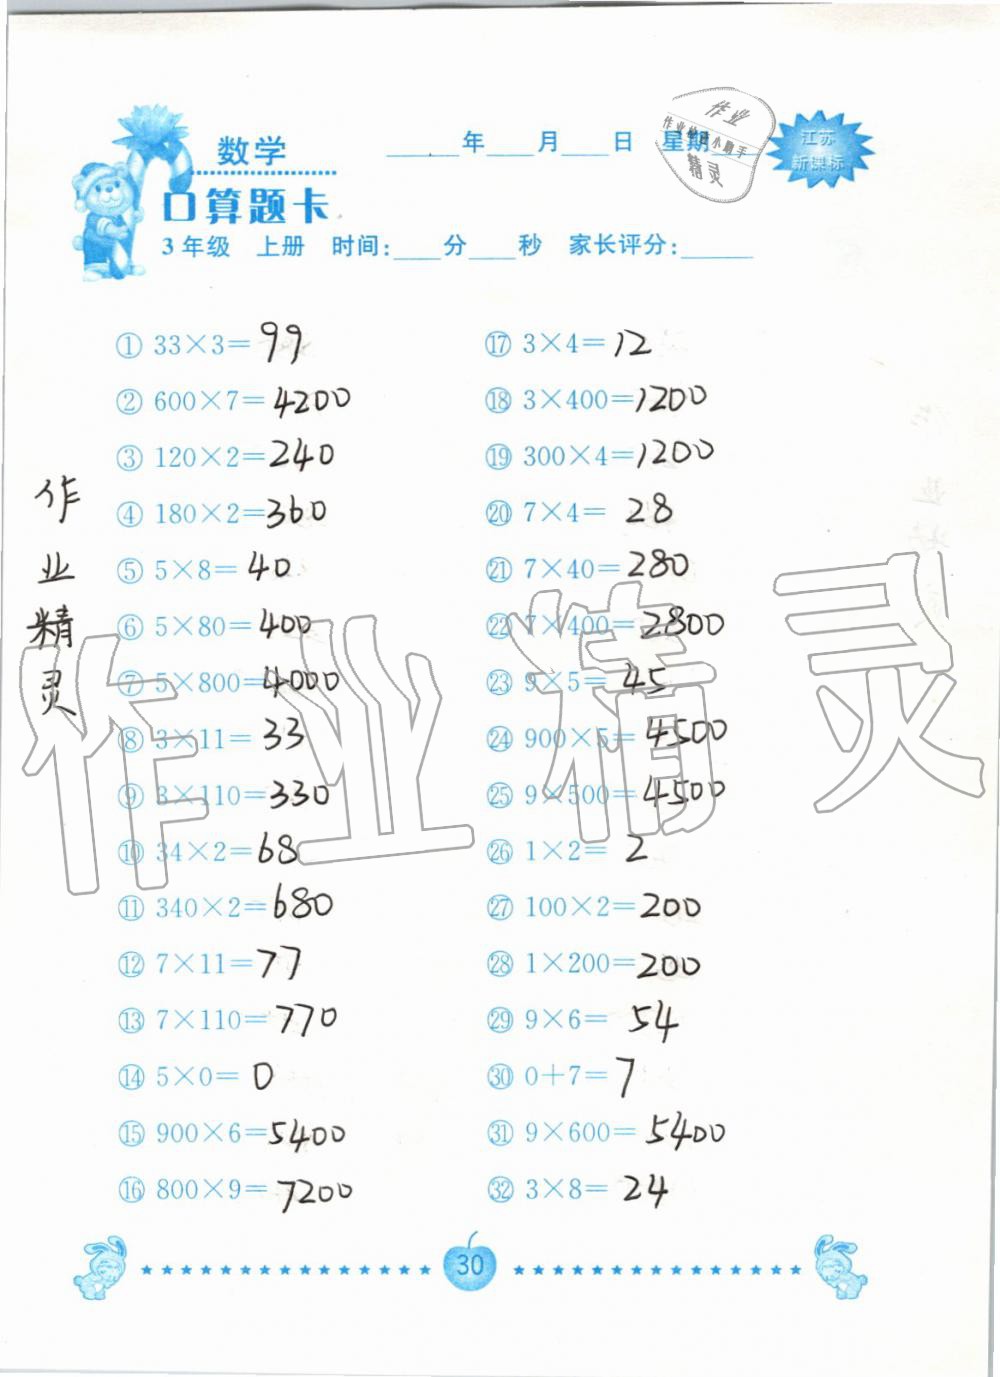 数学
____年____月____日 星期____
江苏
新课标
作业
作业检查小助手
精灵
口算题卡
3年级 上册 时间:____分____秒 家长评分:____
① 33×3=99
② 600×7=4200
③ 120×2=240
④ 180×2=360
⑤ 5×8=40
⑥ 5×80=400
⑦ 5×800=4000
⑧ 3×11=33
⑨ 3×110=330
⑩ 34×2=68
⑪ 340×2=680
⑫ 7×11=77
⑬ 7×110=770
⑭ 5×0=0
⑮ 900×6=5400
⑯ 800×9=7200
⑰ 3×4=12
⑱ 3×400=1200
⑲ 300×4=1200
⑳ 7×4=28
㉑ 7×40=280
㉒ 7×400=2800
㉓ 9×5=45
㉔ 900×5=4500
㉕ 9×500=4500
㉖ 1×2=2
㉗ 100×2=200
㉘ 1×200=200
㉙ 9×6=54
㉚ 0+7=7
㉛ 9×600=5400
㉜ 3×8=24
作
业
精
灵
作业精灵
30